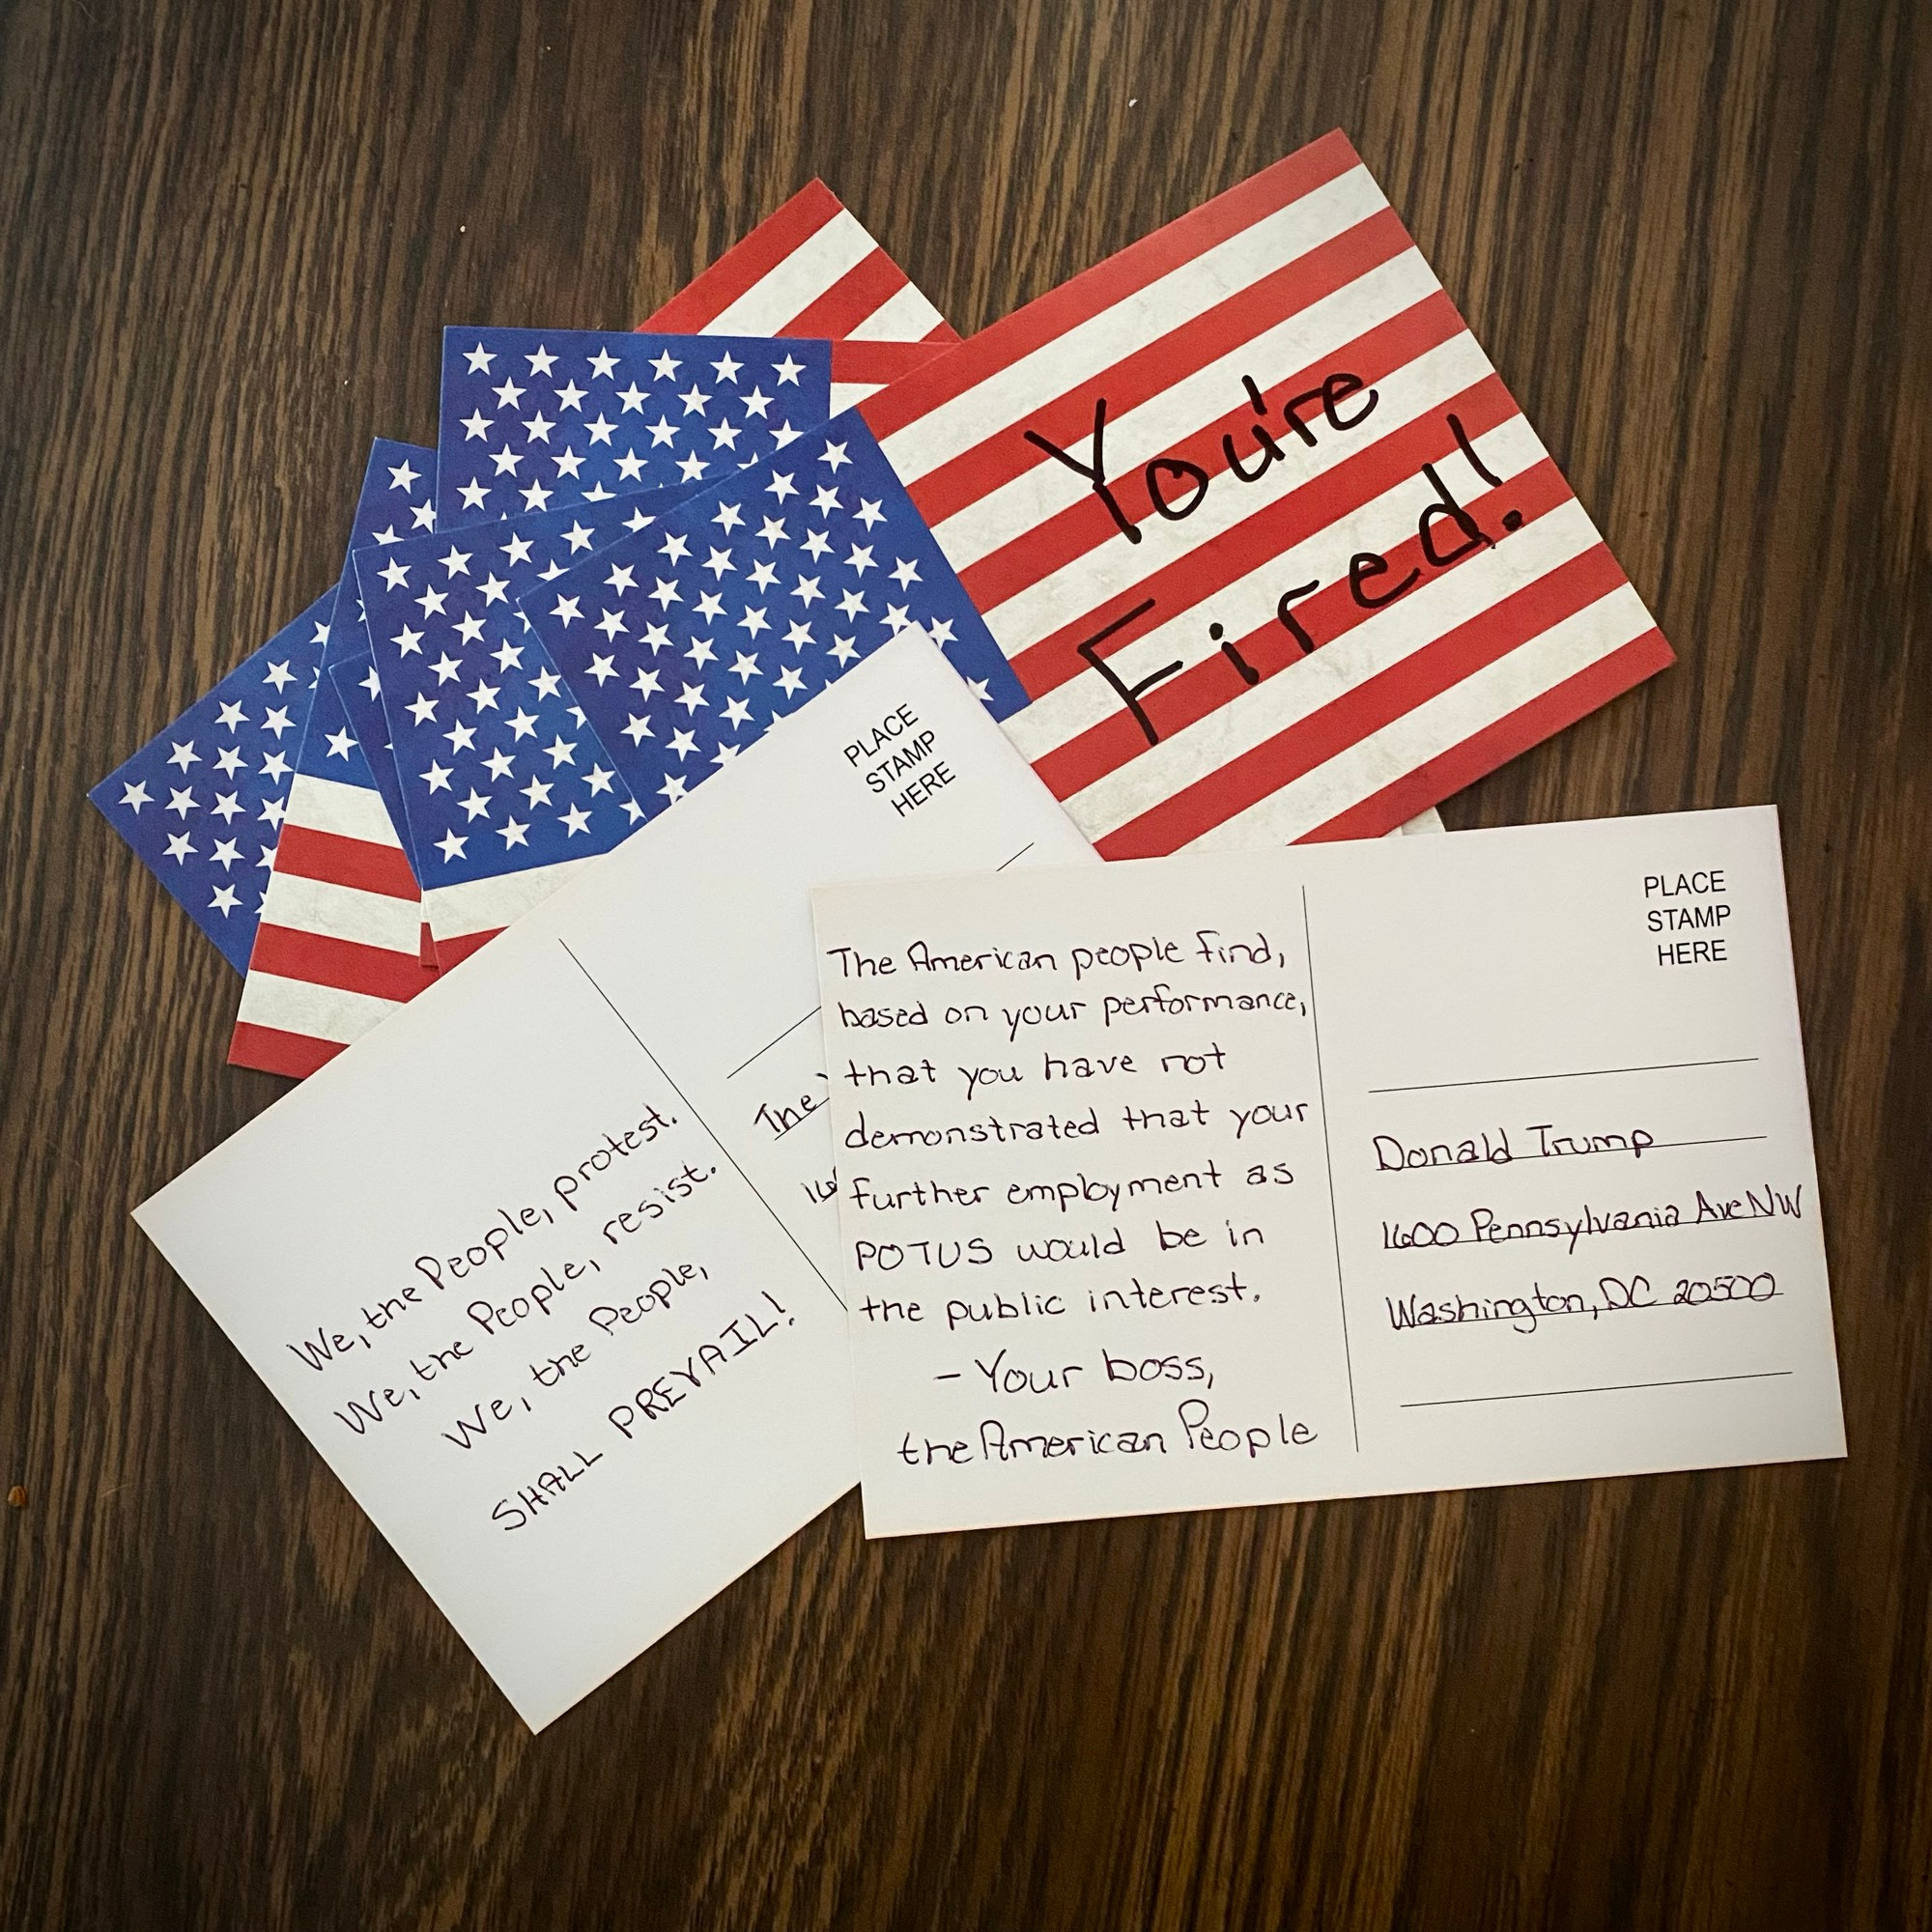 You're
Fired!
PLACE
STAMP
HERE
We, the People, protest.
We, the People, resist.
We, the People,
SHALL PREVAIL!
The
PLACE
STAMP
HERE
The American people find,
based on your performance,
that you have not
demonstrated that your
further employment as
POTUS would be in
the public interest.
- Your boss,
the American People
Donald Trump
1600 Pennsylvania Ave NW
Washington, DC 20500